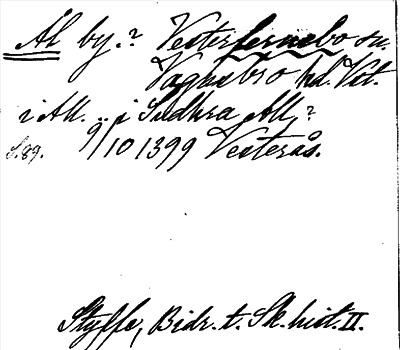 Al by.? Vesterfernebo sn.
Vagnsbro hd. Vstm.
i All. .. i Sudhra All, ?
S. 89. 9/10 1399 Vesterås.
Styffe, Bidr. t. Sk. hist. II.